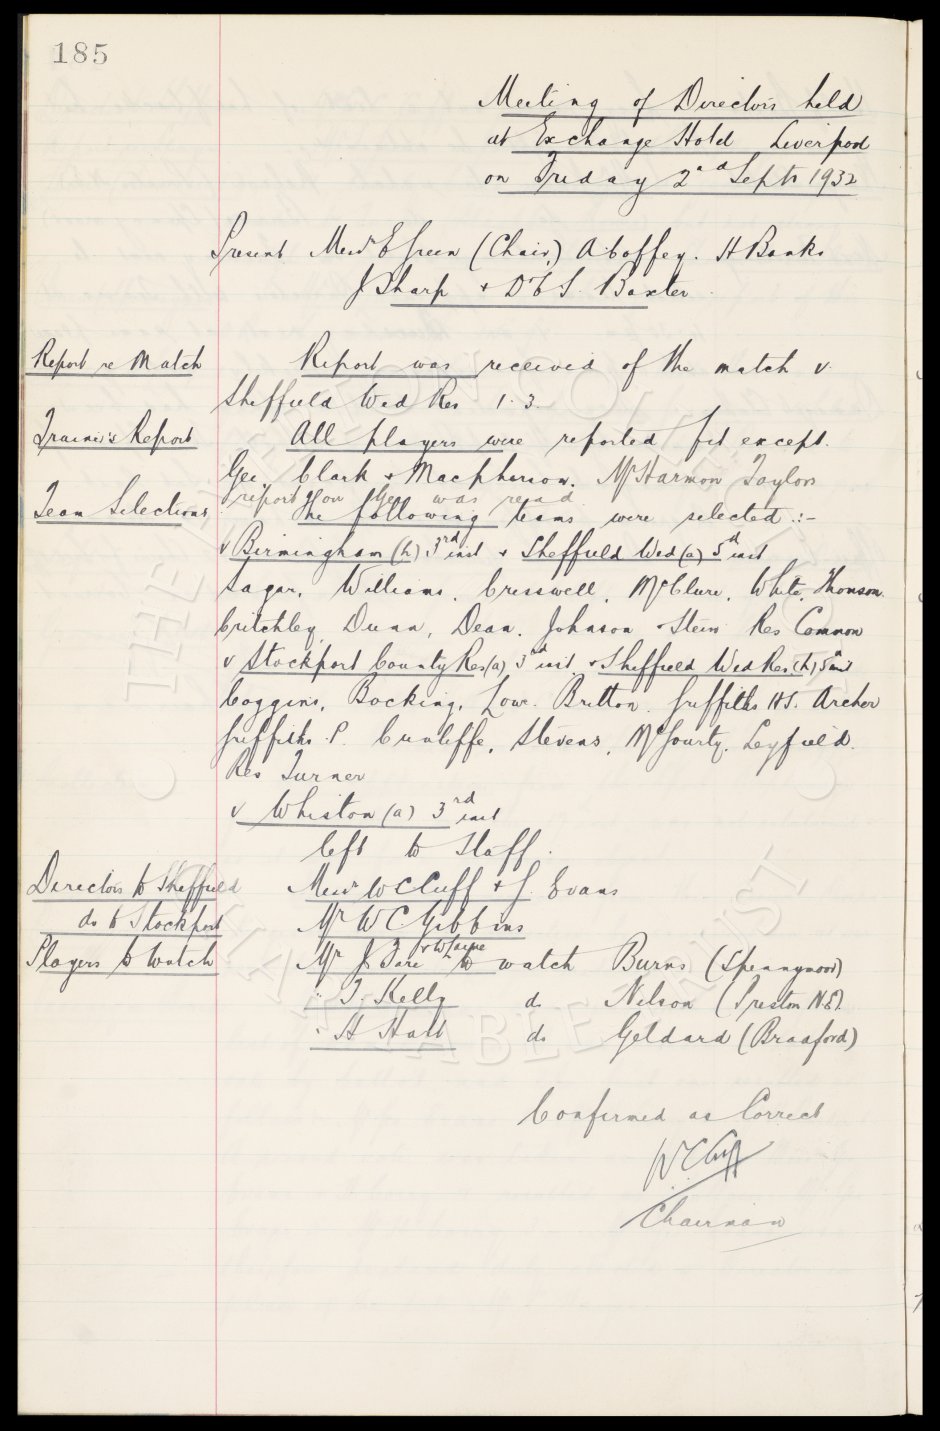 185
Meeting of Directors held
at Exchange Hotel Liverpool
on Friday 2nd Septr 1932
Present Messrs E Green (Chair) A Coffey. H Banks
J Sharp & Dr C S. Baxter.
Report re Match
Report was received of the match v.
Sheffield Wed Res 1.3.
Trainer's Report
All players were reported fit except.
Gee, Clark & Macpherson. Mr Harmon Taylors
report on Gee was read
Team Selections
The following teams were selected :-
v Birmingham (h) 3rd inst & Sheffield Wed (a) 5th inst
Sagar, Williams, Cresswell, McClure, White, Thomson
Critchley, Dunn, Dean, Johnson & Stein Res Common
v Stockport County Res (a) 3rd inst & Sheffield Wed Res (h) 5th inst
Coggins, Bocking, Low. Britton. Griffiths H S. Archer
Griffiths P. Cunliffe, Stevens, McGourty, Leyfield.
Res Turner
v Whiston (a) 3rd inst
left to Staff.
Directors to Sheffield
Messrs W C Cuff & J. Evans
do to Stockport
Mr W C Gibbins
Players to Watch
Mr J Fare & W Jayne to watch Burns (Spennymoor)
" T. Kelly do Nelson (Preston N E).
" H Hall do Geldard (Bradford)
Confirmed as Correct
W C Cuff
Chairman